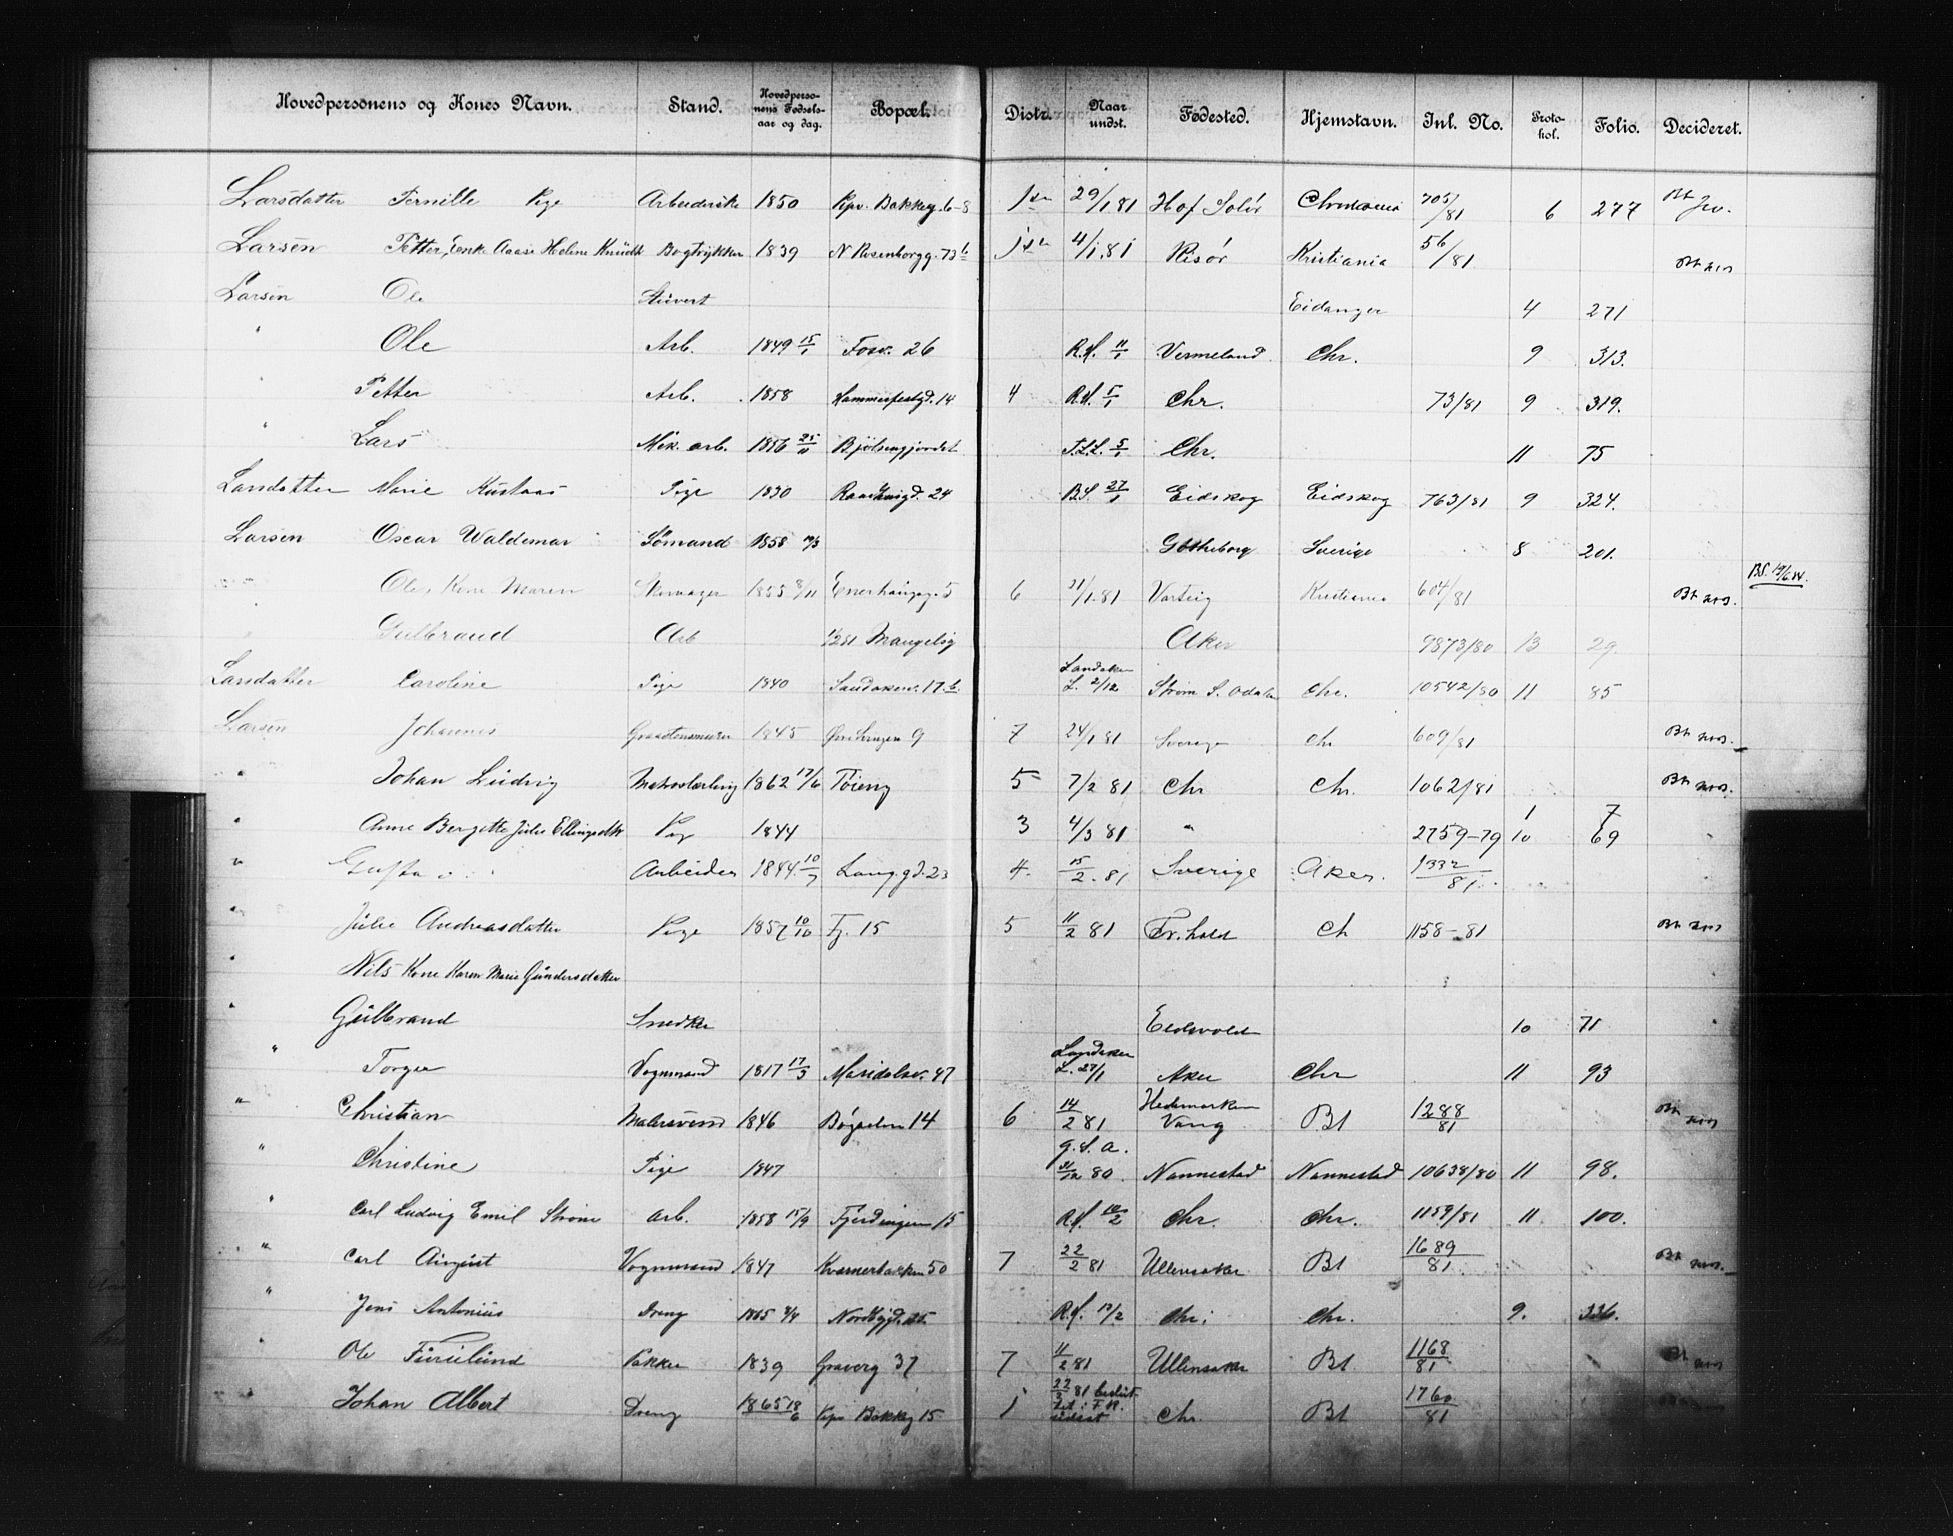 Hovedpersonens og Kones Navn. Stand. Hovedpersonens Fødselsaar og dag. Bopæl. Distr. Naar undst. Fødested. Hjemstavn. Inl. No. Protokol. Folio. Decideret.
Larsdatter Pernille Pige Arbeiderske 1850 Kpv. Bakkeg. 6-8 1ste 29/1 81 Hof Solør Christiania 705/81 6 277
Larsen Petter, Enke Aase Helene Knudtz Bogtrykker 1839 N Rosenborgg. 73 b 1ste 4/1.81 Risør Kristiania 56/81 Bt
Larsen Ole Stuvert Eidanger 4 271
" Ole Arb. 1849 15/1 Fosv. 26 R.f. 11/1 Vermeland Chr. 9 313.
" Petter Arb. 1858 Hammerfestgd. 14 4 R.f. 5/1 Chr. 73/81 9 319.
" Lars Mek. arb. 1856 25/11 Bjølsengjordet T.L.L. 5/1 Chr. 11 75
Larsdatter Marie Kustaas Pige 1830 24 27/1 Eidskog Eidskog 763/81 9 324.
Larsen Oscar Waldemar Sømand 1858 Gøtheborg Sverige 8 201.
" Ole, Kone Maren Skomager 1855 8/11 Enerhaugsg. 5 6 21/1.81 Varteig Kristiania 604/81 Bt
" Gulbrand Arb Mangelsg Aker 9873/80 13 29.
Larsdatter Caroline Pige 1840 Sandakerv. 17 b. Landaker L. 2/12 Strøm S. Odalen Chr. 10542/80 11 85
Larsen Johannes 1845 9 7 24/1 81 Sverige Chr 609/81 Bt
" Johan Ludvig Matroslærling 1862 17/6 Tøieng 5 7/2 81 Chr Chr. 1062/81 Bt
" Anne Bergitte Julie Ellingsdtr Pig 1844 3 4/3 81 " 2759-79 1 10 7 69
" Gusta Arbeider 1844 10/7 Lang.gd. 23 4. 15/2.81 Sverige Aker. 1332/81.
" Julie Andreasdatter Pige 1857 10/10 Fj. 15 5 11/2 81 Fr.hald Ch 1158-81 Bt
" Nils Kone Karen Marie Gundersdatter
" Gulbrand Snedker Eidsvold 10 71
" Torger Vognmand 1817 17/3 Maridalsv. 47 Landaker L. 27/1 Aker Chr 11 93
" Christian Malersvend 1846 14 6 14/2 81 Hedemarken Vang Bt 1288/81 Bt
" Christine Pige 1847 g.L.a. 31/12 80 Nannestad Nannestad 10638/80 11 98.
" Carl Ludvig Emil Strøm Arb. 1858 15/9 Fjerdingen 15 R.f. Chr. Chr. 1159/81 11 100.
" Carl August Vognmand 1847 Kværnerbakken 50 7 22/2 81 Ullensaker Bt 1689/81 Bt
" Jens Antonius Dreng 1865 R.f. 12/2 Chr. Chr. 9. 336.
" Ole Furulund Pakker 1839 Graverg 37 7 11/2 81 Ullensaker Bt 1168/81 Bt
" Johan Albert Dreng 1865 18/6 Kpv Bakkeg 15 1 22/3 81 Chr. Bt 1760/81